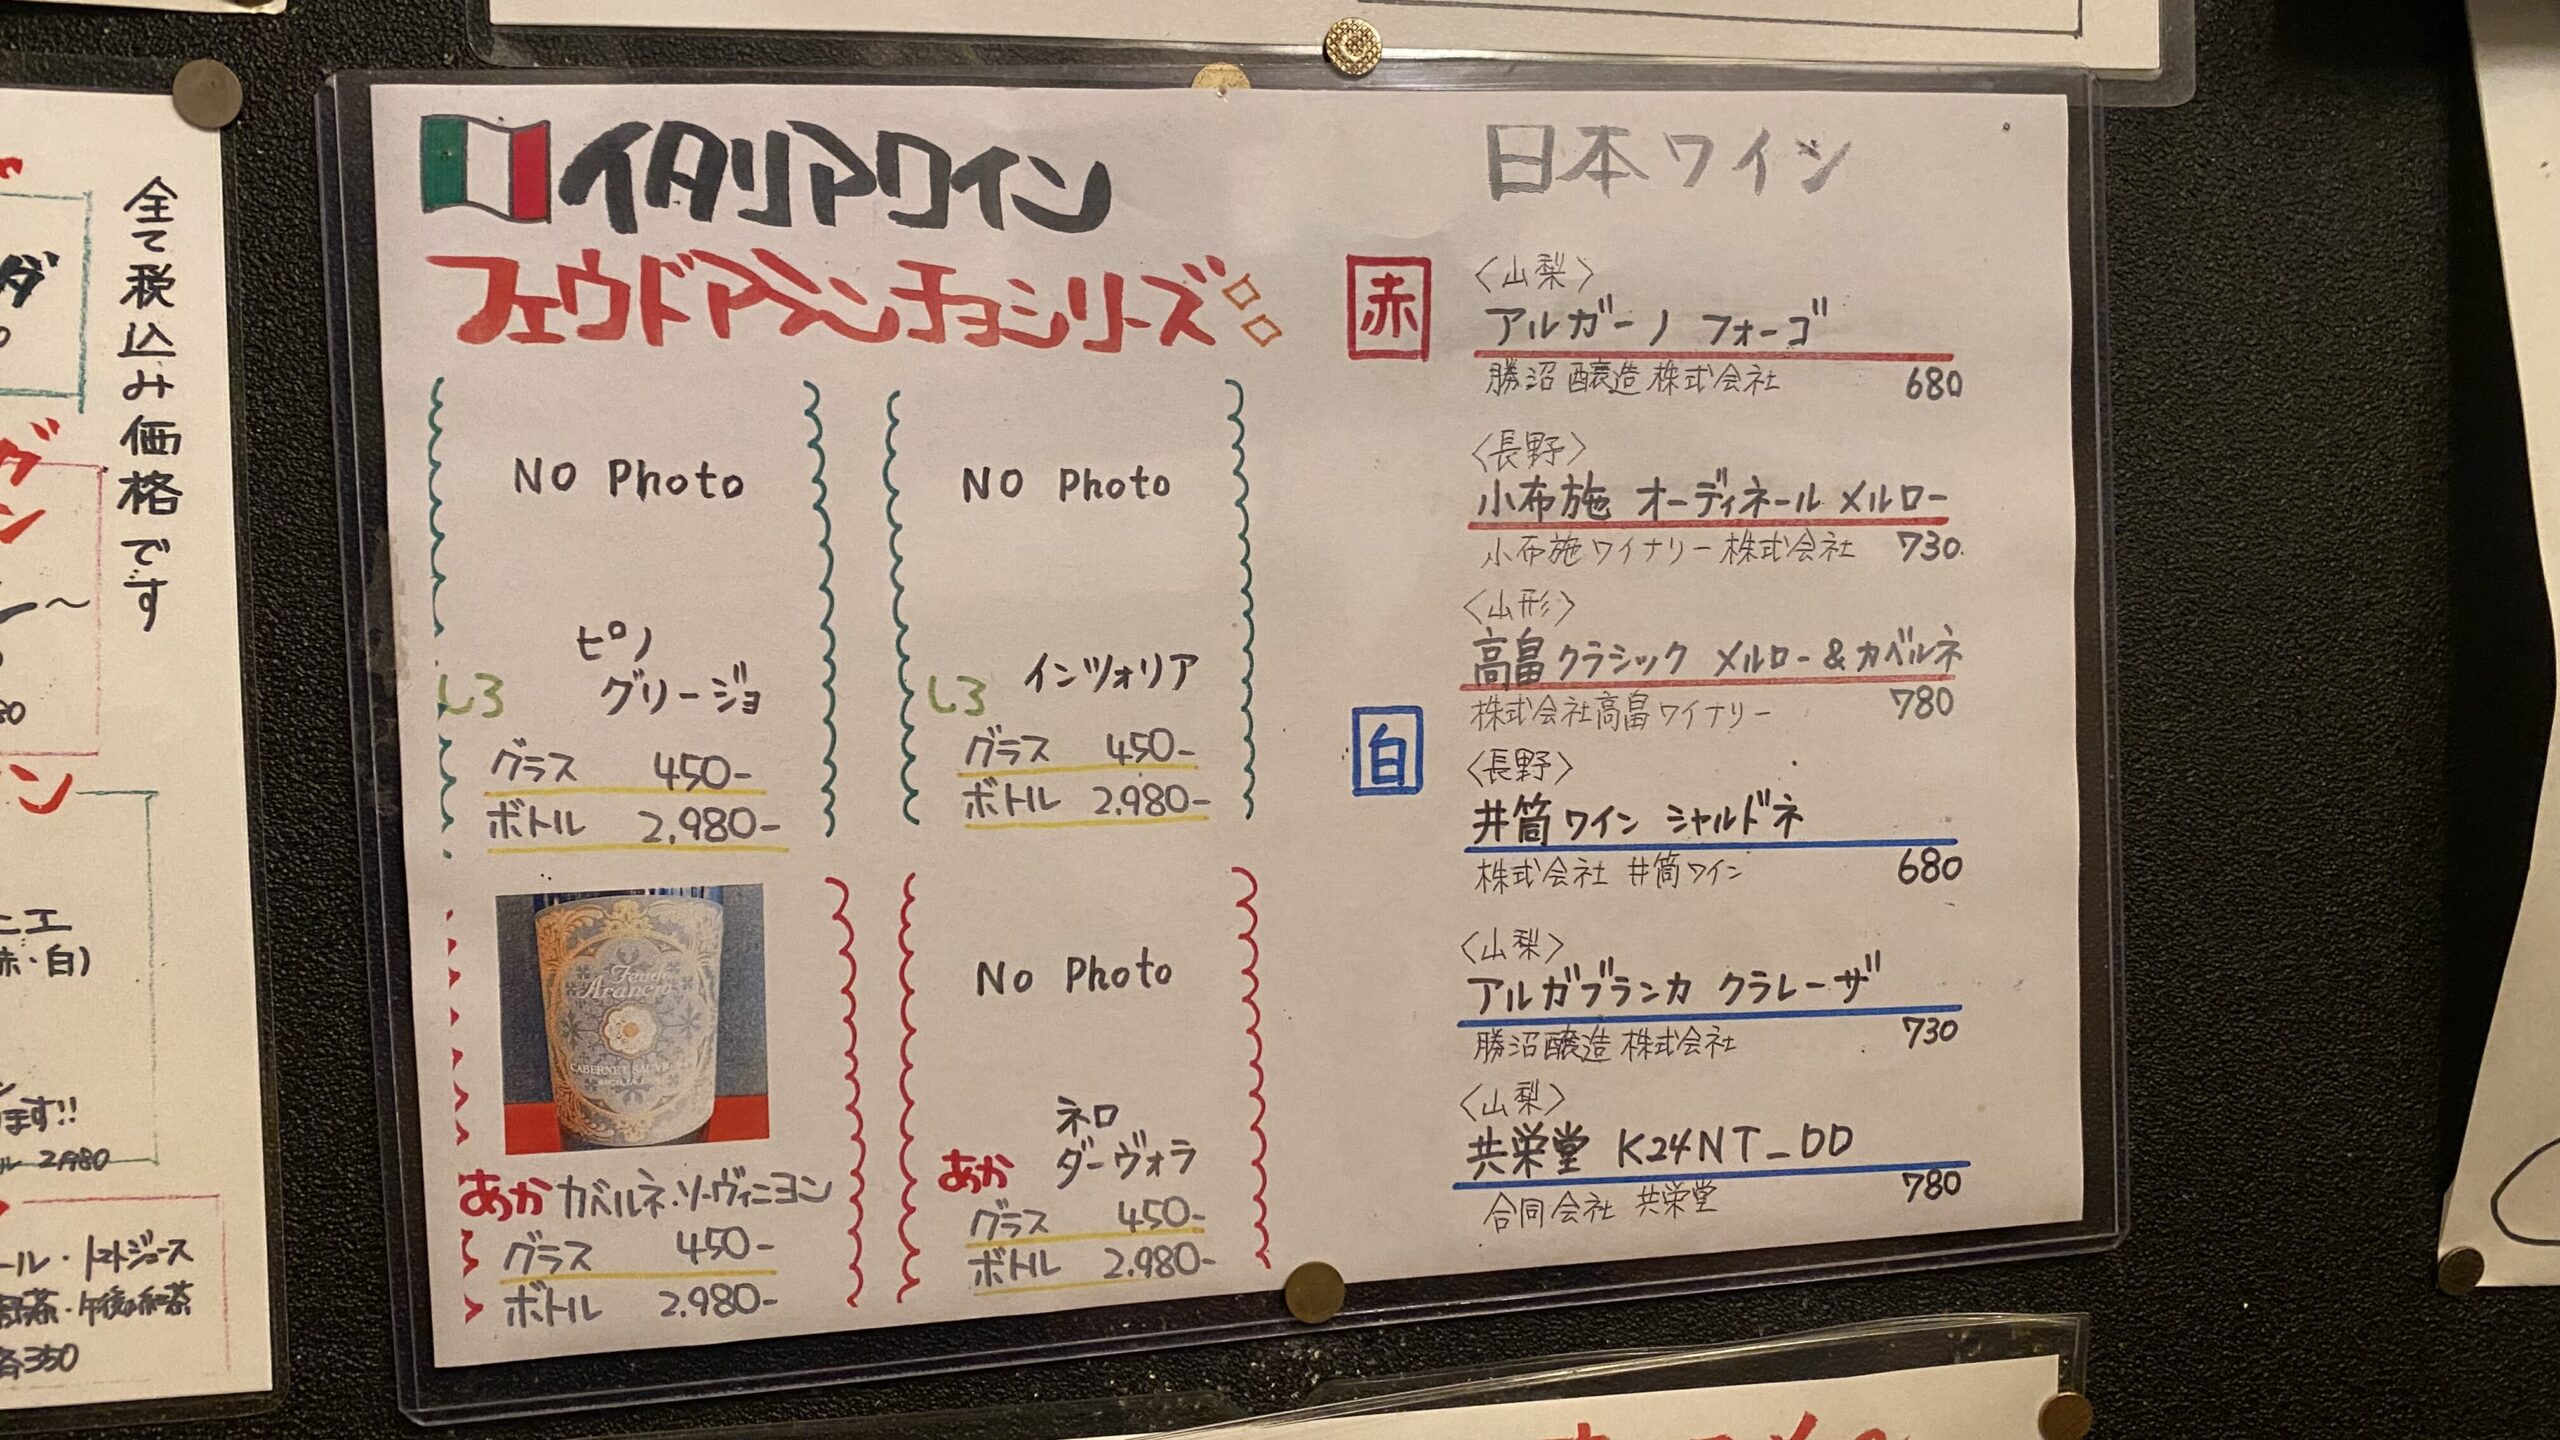 全て税込み価格です
ダ
ン
ニエ
赤・白)
ます!!
2,980
ール・トマトジュース
茶・午後の紅茶
各350
イタリアワイン
フェウドアランチョシリーズ
NO Photo
しろ
ピノ
グリージョ
グラス 450-
ボトル 2,980-
NO Photo
しろ
インツォリア
グラス 450-
ボトル 2,980-
Feudo
Arancio
CABERNET SAUVIGNON
SICILIA
あか カベルネ・ソーヴィニヨン
グラス 450-
ボトル 2,980-
No Photo
あか
ネロ
ダーヴォラ
グラス 450-
ボトル 2,980-
日本ワイン
赤
〈山梨〉
アルガーノ フォーゴ
勝沼醸造株式会社 680
〈長野〉
小布施 オーディネール メルロー
小布施ワイナリー株式会社 730
〈山形〉
高畠クラシック メルロー&カベルネ
株式会社高畠ワイナリー 780
白
〈長野〉
井筒ワイン シャルドネ
株式会社 井筒ワイン 680
〈山梨〉
アルガブランカ クラレーザ
勝沼醸造株式会社 730
〈山梨〉
共栄堂 K24NT_DD
合同会社 共栄堂 780